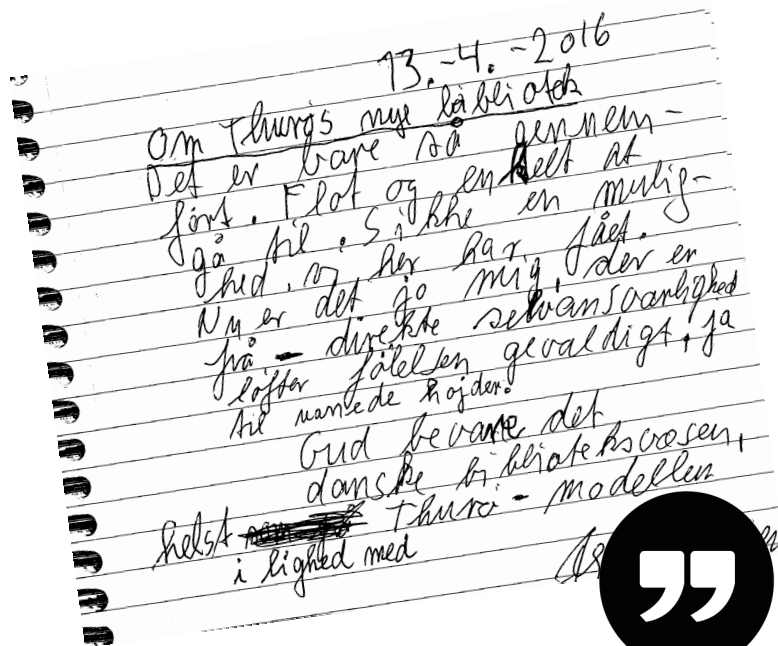 13.-4.-2016
Om Thurøs nye bibliotek
Det er bare så gennem-
ført. Flot og enkelt at
gå til. Sikke en mulig-
hed, og her har fået.
Nu er det jo mig, der er
på - direkte selvansvarlighed
løfter følelsen gevaldigt, ja
til uanede højder.
Gud bevare det
danske biblioteksvæsen,
helst Thurø-modellen
i lighed med